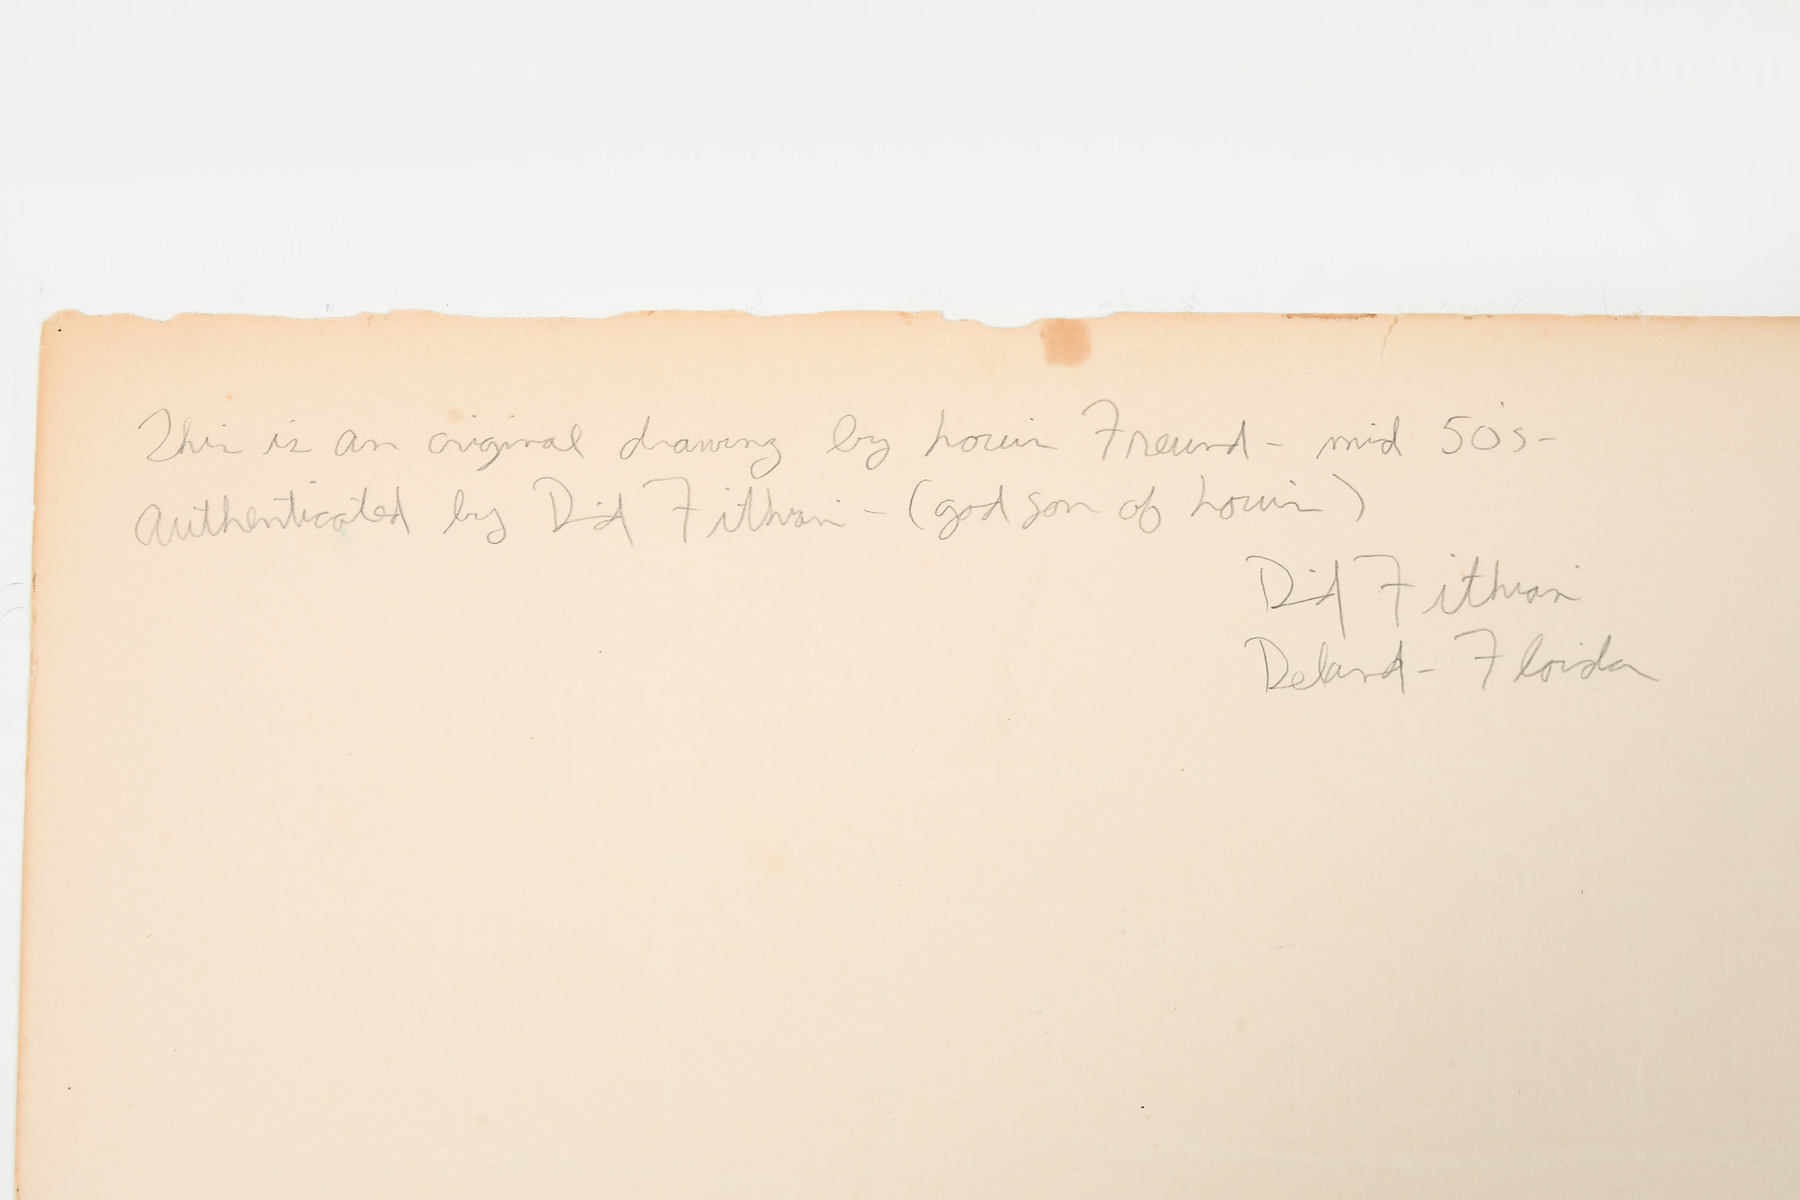 This is an original drawing by Louis Freund - mid 50's -
Authenticated by Fithian - (godson of Louis)
Fithian
Deland - Florida